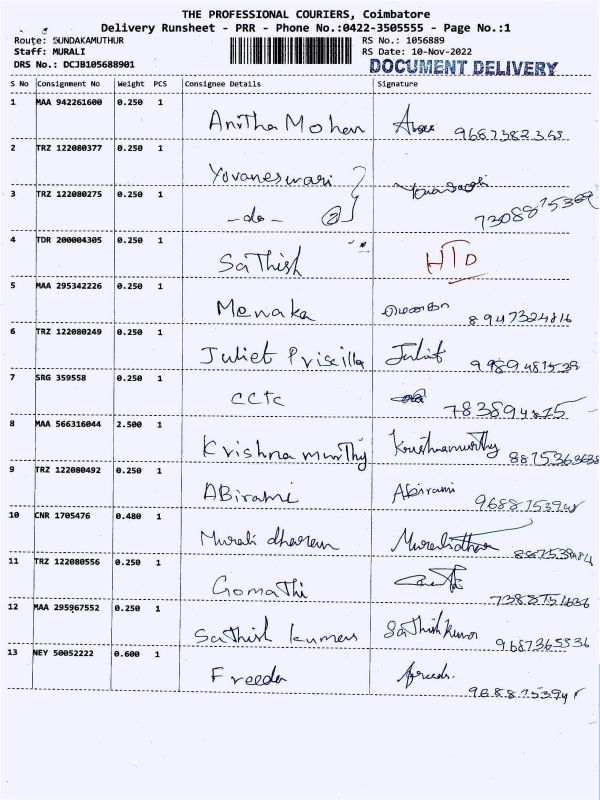 THE PROFESSIONAL COURIERS, Coimbatore
Delivery Runsheet - PRR - Phone No.:0422-3505555 - Page No.:1
Route: SUNDAKAMUTHUR RS No.: 1056889
Staff: MURALI RS Date: 10-Nov-2022
DRS No.: DCJB105688901 DOCUMENT DELIVERY
S No Consignment No Weight PCS Consignee Details Signature
1 MAA 942261600 0.250 1
Anitha Mohan
2 TRZ 122080377 0.250 1
Yovaneswari
3 TRZ 122080275 0.250 1
-do- 2
4 TDR 200004305 0.250 1
Sathish HTD
5 MAA 295342226 0.250 1
Menaka மேனகா 8947324816
6 TRZ 122080249 0.250 1
Juliet Priscilla Juliet
7 SRG 359558 0.250 1
CCTC
8 MAA 566316044 2.500 1
Krishna murthy Krishnamurthy
9 TRZ 122080492 0.250 1
ABirami Abirami
10 CNR 1705476 0.480 1
Murali dharan Muralidhar
11 TRZ 122080556 0.250 1
Gomathi
12 MAA 295967552 0.250 1
Sathish kumar Sathish Kumar 9687365536
13 NEY 50052222 0.600 1
Freeda Freeda